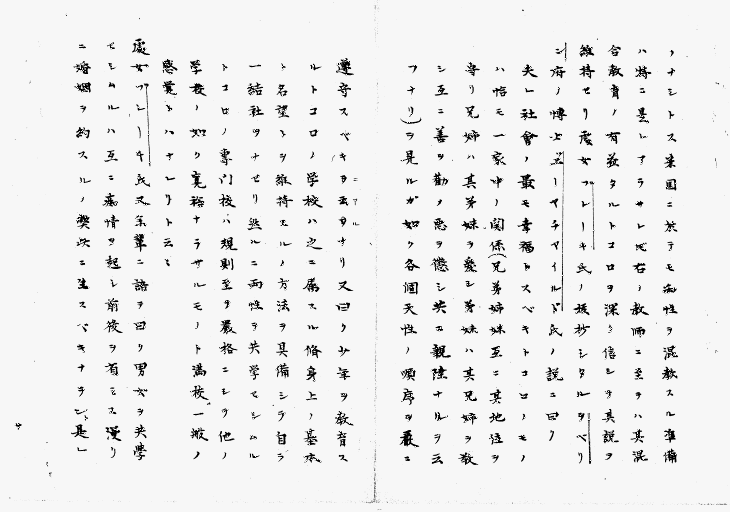 ノナシトス米国ニ於テモ両性ヲ混教スル準備
ハ特ニ是レアラサレ𪜈右ノ教師ニ至テハ其混
合教育ノ有益タルトコロヲ深ク信シテ其説ヲ
維持セリ処女ブレーキ氏ノ抜抄シタルタベリ
ン府ノ博士エーヤチヤイルド氏ノ説ニ曰ク
夫レ社会ノ最モ幸福トスベキトコロノモノ
ハ恰モ一家中ノ関係(兄弟姉妹互ニ其地位ヲ
守リ兄姉ハ其弟妹ヲ愛シ弟妹ハ其兄姉ヲ敬
シ互ニ善ヲ勧メ悪ヲ懲シ共ニ親陸ナルヲ云
フナリ)ヲ見ルガ如ク各個天性ノ順序ヲ最ニ
遵守スベキヲ云フナリ又曰ク少年ヲ教育ス
ルトコロノ学校ハ之ニ属スル脩身上ノ基本
ト名望トヲ維持スルノ方法ヲ具備シテ自ラ
一結社ヲナセリ然ルニ両性ヲ共学セシムル
トコロノ専門校ハ規則至テ厳格ニシテ他ノ
学校ノ如ク寛裕ナラサルモノト満校一般ノ
感覚トハナレリト云々
処女ブレーキ氏又余輩ニ語テ曰ク男女ヲ共学
セシムルハ互ニ痴情ヲ起シ前後ヲ省ミス漫リ
ニ婚姻ヲ約スルノ弊此ニ生スベキナラン是レ